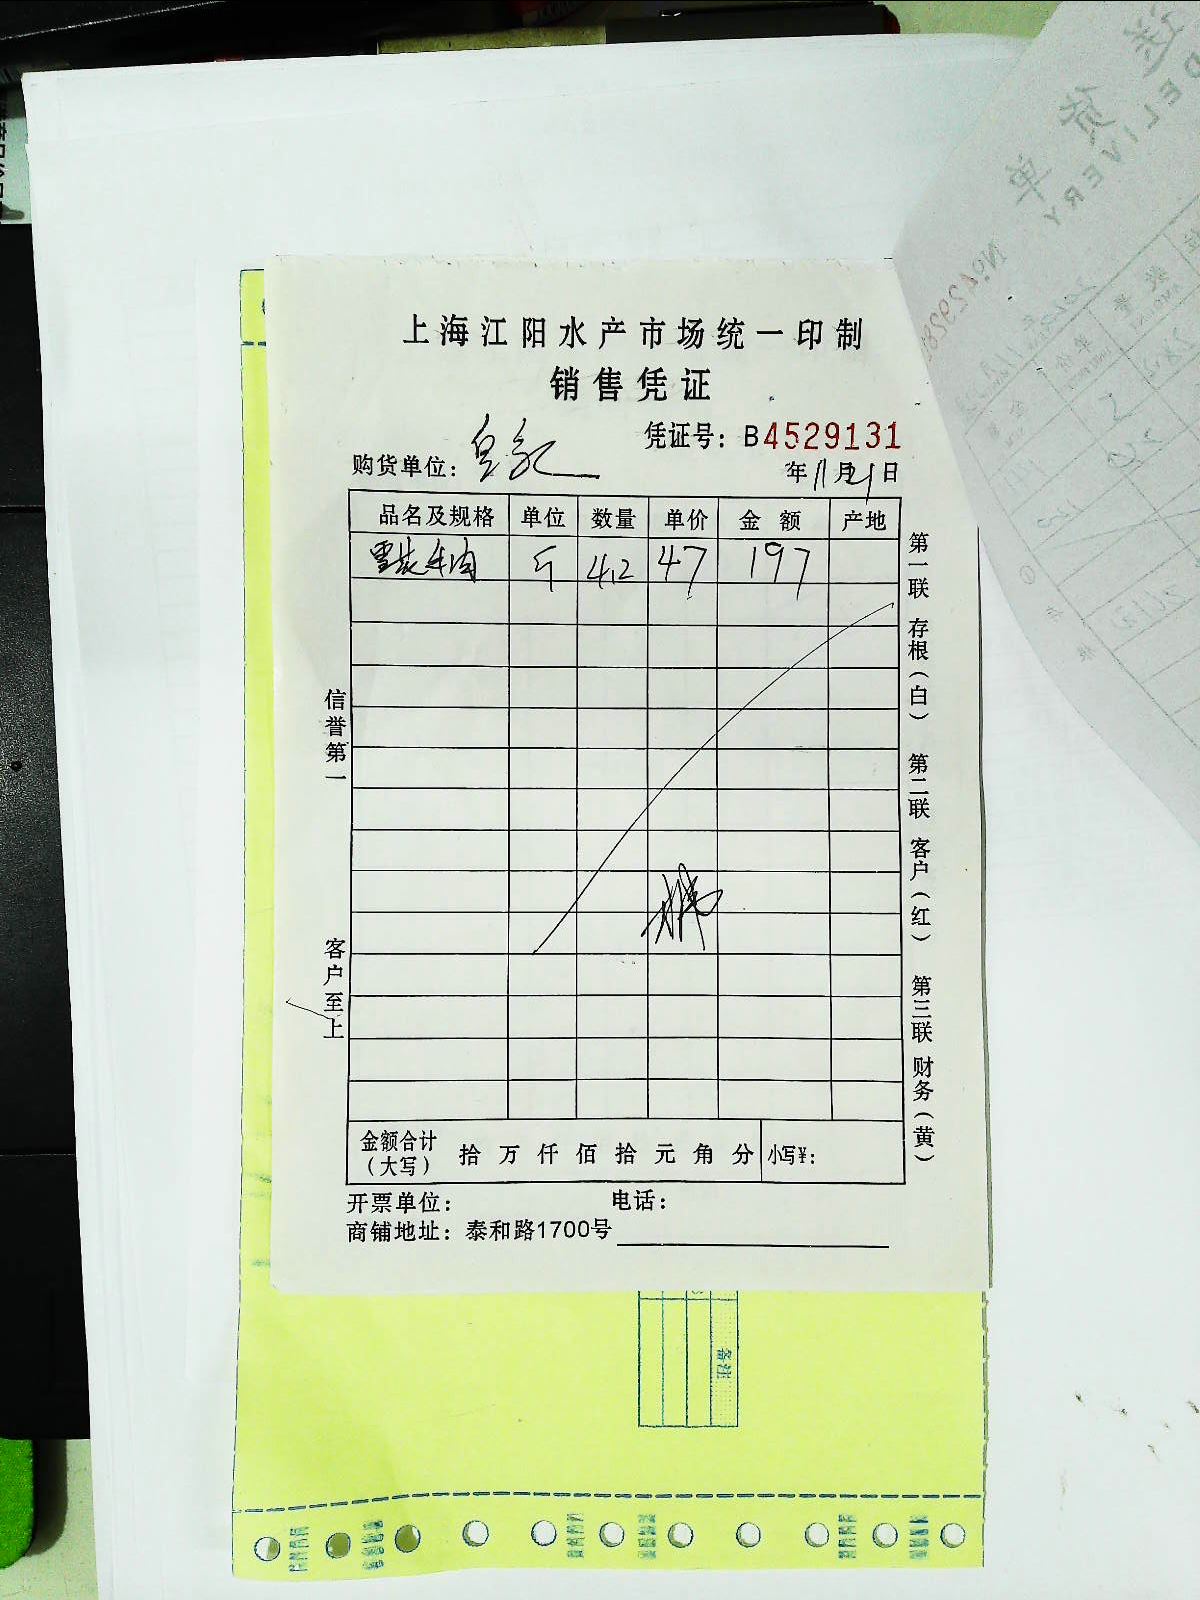 上海江阳水产市场统一印制
销售凭证
凭证号：B4529131
购货单位：
年11月21日
品名及规格 单位 数量 单价 金额 产地
雪花牛肉 斤 4.2 47 197
信誉第一
客户至上
第一联 存根（白） 第二联 客户（红） 第三联 财务（黄）
金额合计（大写） 拾 万 仟 佰 拾 元 角 分 小写¥：
开票单位： 电话：
商铺地址：泰和路1700号
备注
送货单
DELIVERY